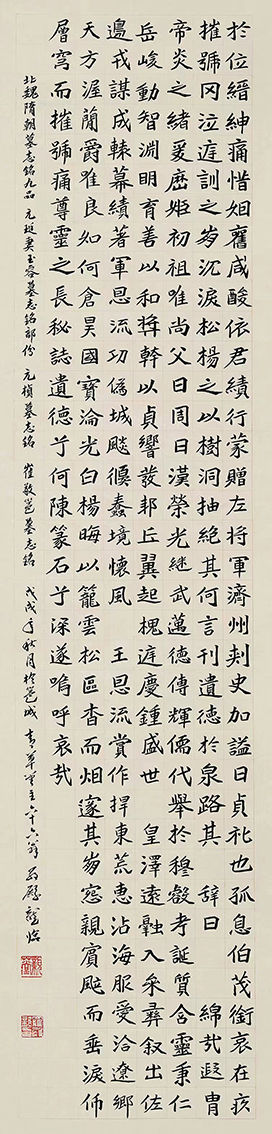 於位縉紳痛惜姻舊咸酸依君績行蒙贈左將軍濟州刺史加謚曰貞礼也孤息伯茂銜哀在疚
摧號罔泣遟訓之岁沉淚松楊之以樹洞抽絶其何言刊遺德於泉路其辞曰 綿哉遐胄
帝炎之緒爰歷姬初祖唯尚父曰周曰漢榮光継武萬德傳輝儒代舉於穆叡考誕質含靈秉仁
岳峻動智淵明育善以和獎幹以貞響發邦丘翼起槐遟慶鍾盛世 皇澤遠融入釆彝叙出佐
邊戎謀成轅幕績著軍思流功僞城颷偃蠢境懷風 王恩流賞作捍東荒惠沾海服受洽遼鄉
天方渥蘭爵唯良如何倉昊國寳淪光白楊晦以籠雲松區杳而烟邃其岁窓親賓颷而垂淚佈
層穹而摧號痛尊靈之長秘誌遺德兮何陳篆石兮深遂嗚呼哀哉
北魏隋朝墓志銘九品 元珽奧玉容墓志銘部份 元楨墓志銘 崔敬邕墓志銘 戊戌年秋月於邕城 青草堂主六十六翁